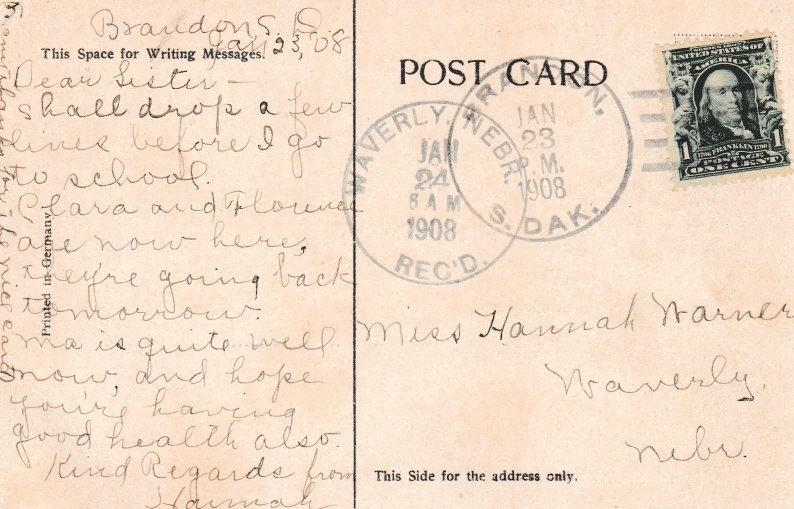 Brandon S. D.
Jan 23, '08
This Space for Writing Messages.
Dear Sister -
Shall drop a few
lines before I go
to school.
Clara and Florence
are now here,
they're going back
tomorrow.
Ma is quite well
now, and hope
you're having
good health also.
Kind Regards from
Hannah
for the nice card
Printed in Germany
POST CARD
WAVERLY, NEBR.
JAN
24
6 AM
1908
REC'D.
BRANDON,
JAN
23
P.M.
1908
S. DAK.
SERIES 1902
UNITED STATES OF
AMERICA
1
1706 FRANKLIN 1790
POSTAGE
ONE CENT
Miss Hannah Warner
Waverly,
Nebr.
This Side for the address only.